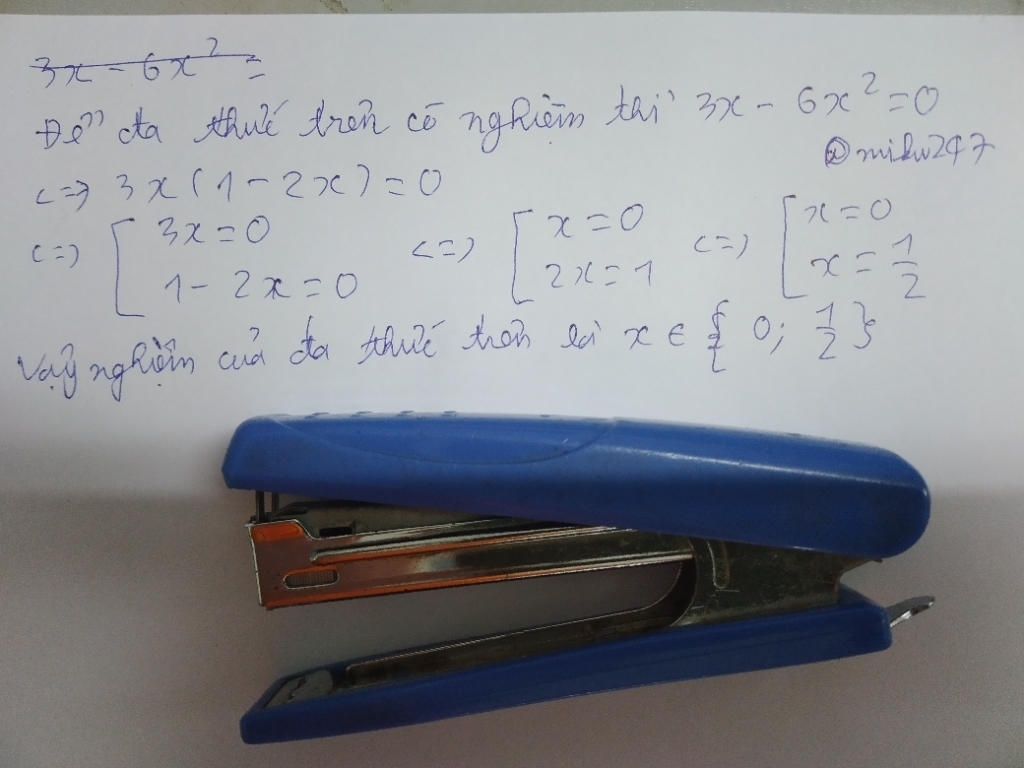 3x - 6x² =
Để đa thức trên có nghiệm thì 3x - 6x² = 0
@miku247
<=> 3x(1 - 2x) = 0
<=> [ 3x = 0 <=> [ x = 0 <=> [ x = 0
1 - 2x = 0 2x = 1 x = 1/2
Vậy nghiệm của đa thức trên là x ∈ { 0; 1/2 }